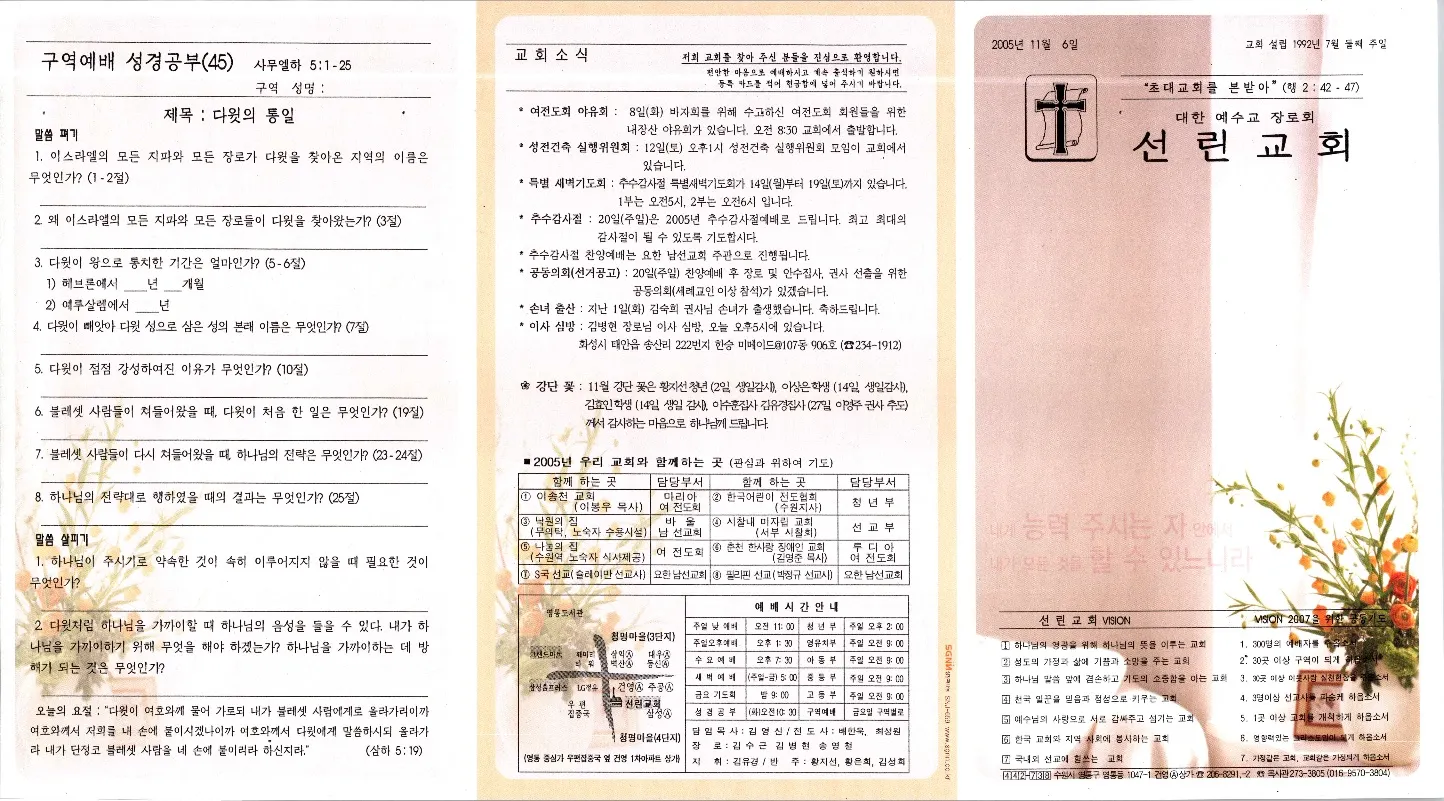 구역예배 성경공부(45) 사무엘하 5:1-25
구역 성명 :
제목 : 다윗의 통일
말씀 펴기
1. 이스라엘의 모든 지파와 모든 장로가 다윗을 찾아온 지역의 이름은
무엇인가? (1-2절)
2. 왜 이스라엘의 모든 지파와 모든 장로들이 다윗을 찾아왔는가? (3절)
3. 다윗이 왕으로 통치한 기간은 얼마인가? (5-6절)
1) 헤브론에서 ___년 ___개월
2) 예루살렘에서 ___년
4. 다윗이 빼앗아 다윗 성으로 삼은 성의 본래 이름은 무엇인가? (7절)
5. 다윗이 점점 강성하여진 이유가 무엇인가? (10절)
6. 블레셋 사람들이 쳐들어왔을 때, 다윗이 처음 한 일은 무엇인가? (19절)
7. 블레셋 사람들이 다시 쳐들어왔을 때, 하나님의 전략은 무엇인가? (23-24절)
8. 하나님의 전략대로 행하였을 때의 결과는 무엇인가? (25절)
말씀 살피기
1. 하나님이 주시기로 약속한 것이 속히 이루어지지 않을 때 필요한 것이
무엇인가?
2. 다윗처럼 하나님을 가까이할 때 하나님의 음성을 들을 수 있다. 내가 하
나님을 가까이하기 위해 무엇을 해야 하겠는가? 하나님을 가까이하는 데 방
해가 되는 것은 무엇인가?
오늘의 요절 : "다윗이 여호와께 물어 가로되 내가 블레셋 사람에게로 올라가리이까
여호와께서 저희를 내 손에 붙이시겠나이까 여호와께서 다윗에게 말씀하시되 올라가
라 내가 단정코 블레셋 사람을 네 손에 붙이리라 하신지라." (삼하 5:19)
교회소식
저희 교회를 찾아 주신 분들을 진심으로 환영합니다.
편안한 마음으로 예배하시고 계속 출석하기 원하시면
등록 카드를 적어 헌금함에 넣어 주시기 바랍니다.
* 여전도회 야유회 : 8일(화) 바자회를 위해 수고하신 여전도회 회원들을 위한
내장산 야유회가 있습니다. 오전 8:30 교회에서 출발합니다.
* 성전건축 실행위원회 : 12일(토) 오후1시 성전건축 실행위원회 모임이 교회에서
있습니다.
* 특별 새벽기도회 : 추수감사절 특별새벽기도회가 14일(월)부터 19일(토)까지 있습니다.
1부는 오전5시, 2부는 오전6시 입니다.
* 추수감사절 : 20일(주일)은 2005년 추수감사절예배로 드립니다. 최고 최대의
감사절이 될 수 있도록 기도합시다.
* 추수감사절 찬양예배는 요한 남선교회 주관으로 진행됩니다.
* 공동의회(선거공고) : 20일(주일) 찬양예배 후 장로 및 안수집사, 권사 선출을 위한
공동의회(세례교인 이상 참석)가 있겠습니다.
* 손녀 출산 : 지난 1일(화) 김숙희 권사님 손녀가 출생했습니다. 축하드립니다.
* 이사 심방 : 김병현 장로님 이사 심방, 오늘 오후5시에 있습니다.
화성시 태안읍 송산리 222번지 한승 미메이드@107동 906호 (☎234-1912)
❀ 강단 꽃 : 11월 강단 꽃은 황지선청년 (2일, 생일감사), 이상은학생 (14일, 생일감사),
김효인학생 (14일, 생일 감사), 이수훈집사 김유경집사 (27일, 이영주 권사 추도)
께서 감사하는 마음으로 하나님께 드립니다.
■ 2005년 우리 교회와 함께하는 곳 (관심과 위하여 기도)
함께 하는 곳 담당부서 함께 하는 곳 담당부서
① 이송천 교회 (이봉우 목사) 마리아 여전도회 ② 한국어린이 전도협회 (수원지사) 청년부
③ 낙원의 집 (무의탁, 노숙자 수용시설) 바울 남선교회 ④ 시찰내 미자립 교회 (서부 시찰회) 선교부
⑤ 나눔의 집 (수원역 노숙자 식사제공) 여 전도회 ⑥ 춘천 한사랑 장애인 교회 (김영준 목사) 루디아 여 전도회
⑦ S국 선교(슬레이만 선교사) 요한남선교회 ⑧ 필리핀 선교(박창규 선교사) 요한 남선교회
영통도서관
청명마을(3단지)
삼익Ⓐ 대우Ⓐ
벽산Ⓐ 동신Ⓐ
LG정유 건영Ⓐ 주공Ⓐ
우편집중국 선린교회
삼성Ⓐ
청명마을(4단지)
(영통 중심가 우편집중국 옆 건영 1차아파트 상가)
예배시간안내
주일 낮 예배 오전 11:00 청년부 주일 오후 2:00
주일오후예배 오후 1:30 영유치부 주일 오전 9:00
수요예배 오후 7:30 아동부 주일 오전 9:00
새벽예배 (주일-금) 5:00 중등부 주일 오전 9:00
금요 기도회 밤 9:00 고등부 주일 오전 9:00
성경공부 (화)오전10:30 구역예배 금요일 구역별로
담임목사 : 김영신 / 전도사 : 배한욱, 최성원
장로 : 김수근 김병현 송영현
지휘 : 김유경 / 반주 : 황지선, 황은희, 김성희
2005년 11월 6일
교회 설립 1992년 7월 둘째 주일
"초대교회를 본받아" (행 2:42-47)
대한 예수교 장로회
선린교회
능력 주시는 자 안에서
내가 모든 것을 할 수 있느니라
선린교회 VISION
1 하나님의 영광을 위해 하나님의 뜻을 이루는 교회
2 성도의 가정과 삶에 기쁨과 소망을 주는 교회
3 하나님 말씀 앞에 겸손하고 기도의 소중함을 아는 교회
4 천국 일꾼을 믿음과 정성으로 키우는 교회
5 예수님의 사랑으로 서로 감싸주고 섬기는 교회
6 한국 교회와 지역 사회에 봉사하는 교회
7 국내외 선교에 힘쓰는 교회
VISION 2007을 위한 공동기도
1. 300명의 예배자를
2. 30곳 이상 구역이 되게
3. 30곳 이상 이웃사랑 하소서
4. 3명이상 선교사를 하옵소서
5. 1곳 이상 교회를 개척하게 하옵소서
6. 영향력있는 되게 하옵소서
7. 가정같은 교회, 교회같은 가정되게 하옵소서
442-738 수원시 영통구 영통동 1047-1 건영Ⓐ상가 ☎ 206-8291,-2 ☎ 목사관273-3805 (016-9570-3804)